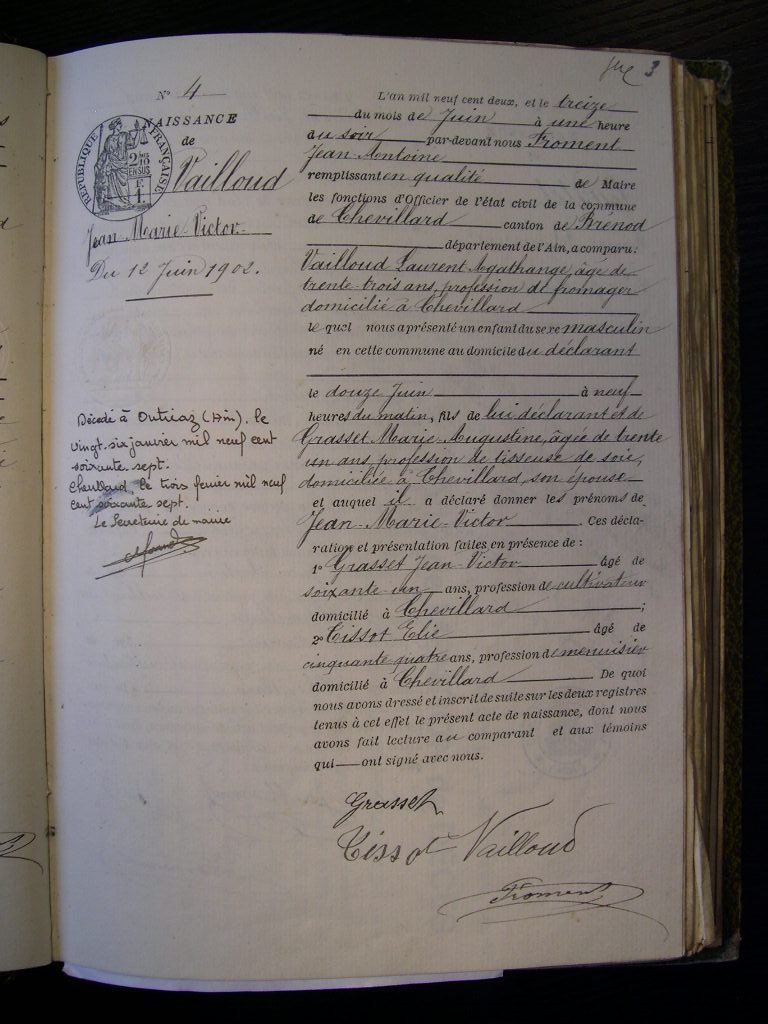 3
N° 4
NAISSANCE
de
RÉPUBLIQUE FRANÇAISE
2/10
EN SUS
1 F.
Vailloud
Jean-Marie-Victor
Du 12 Juin 1902.
Décédé à Outriaz (Ain). le
vingt-six janvier mil neuf cent
soixante sept.
Chevillard, le trois fevrier mil neuf
cent soixante sept.
Le Secretaire de mairie
L'an mil neuf cent deux, et le treize
du mois de Juin à une heure
du soir par-devant nous Froment
Jean Antoine
remplissant en qualité de Maire
les fonctions d'Officier de l'état civil de la commune
de Chevillard canton de Brénod
département de l'Ain, a comparu:
Vailloud Laurent Agathange, âgé de
trente-trois ans, profession de fromager
domicilié à Chevillard
le quel nous a présenté un enfant du sexe masculin
né en cette commune au domicile du déclarant
le douze Juin à neuf
heures du matin, fils de lui déclarant et de
Grasset Marie-Augustine, âgée de trente
un ans, profession de tisseuse de soie,
domiciliée à Chevillard, son épouse
et auquel il a déclaré donner les prénoms de
Jean-Marie-Victor. Ces décla-
ration et présentation faites en présence de :
1° Grasset Jean-Victor âgé de
soixante-un ans, profession de cultivateur
domicilié à Chevillard ;
2° Tissot Elie âgé de
cinquante quatre ans, profession de menuisier
domicilié à Chevillard De quoi
nous avons dressé et inscrit de suite sur les deux registres
tenus à cet effet le présent acte de naissance, dont nous
avons fait lecture au comparant et aux témoins
qui ont signé avec nous.
Grasset
Tissot Vailloud
Froment